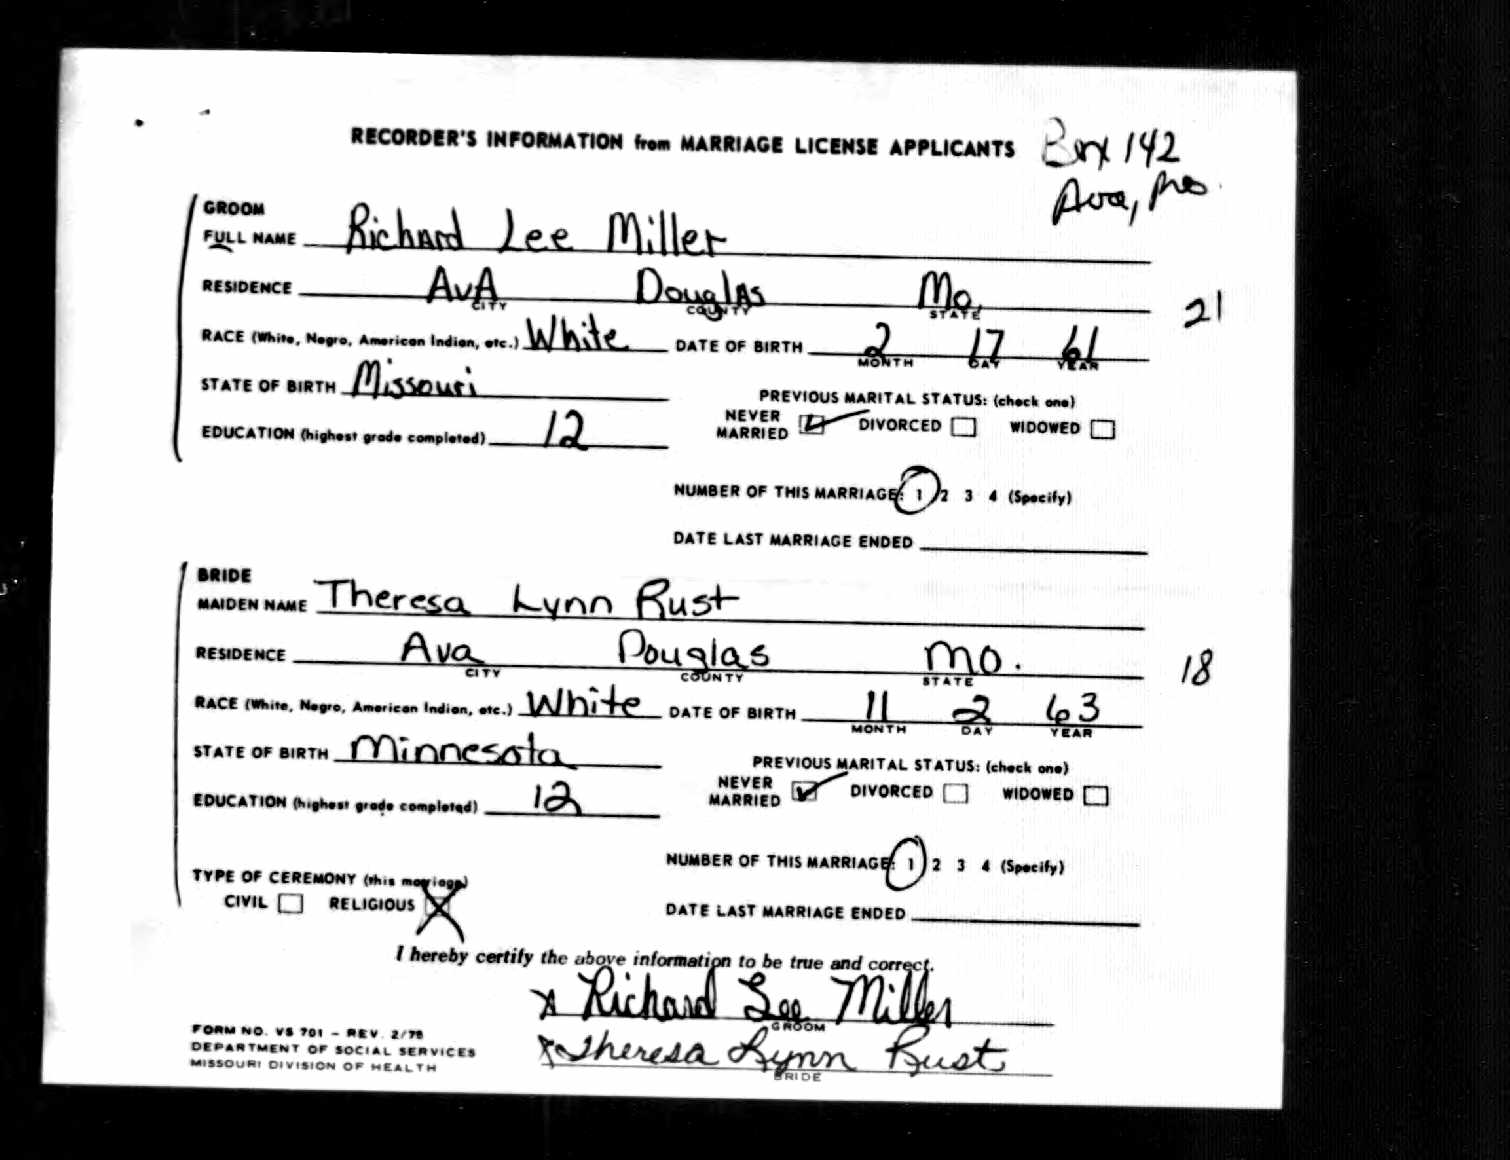 RECORDER'S INFORMATION from MARRIAGE LICENSE APPLICANTS Box 142
Ava, Mo.
GROOM
FULL NAME Richard Lee Miller
RESIDENCE AvA Douglas Mo.
CITY COUNTY STATE
21
RACE (White, Negro, American Indian, etc.) White DATE OF BIRTH 2 17 61
MONTH DAY YEAR
STATE OF BIRTH Missouri PREVIOUS MARITAL STATUS: (check one)
EDUCATION (highest grade completed) 12 NEVER MARRIED DIVORCED WIDOWED
NUMBER OF THIS MARRIAGE: 1 2 3 4 (Specify)
DATE LAST MARRIAGE ENDED
BRIDE
MAIDEN NAME Theresa Lynn Rust
RESIDENCE Ava Douglas Mo.
CITY COUNTY STATE
18
RACE (White, Negro, American Indian, etc.) White DATE OF BIRTH 11 2 63
MONTH DAY YEAR
STATE OF BIRTH Minnesota PREVIOUS MARITAL STATUS: (check one)
EDUCATION (highest grade completed) 12 NEVER MARRIED DIVORCED WIDOWED
NUMBER OF THIS MARRIAGE: 1 2 3 4 (Specify)
TYPE OF CEREMONY (this marriage)
CIVIL RELIGIOUS DATE LAST MARRIAGE ENDED
I hereby certify the above information to be true and correct.
x Richard Lee Miller
GROOM
x Theresa Lynn Rust
BRIDE
FORM NO. VS 701 - REV. 2/78
DEPARTMENT OF SOCIAL SERVICES
MISSOURI DIVISION OF HEALTH